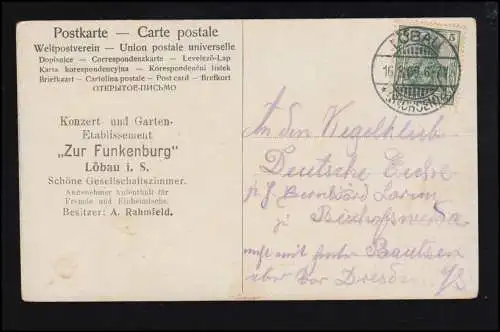 Postkarte — Carte postale
Weltpostverein — Union postale universelle
Dopisnice — Correspondenzkarte — Levelező-Lap
Karta korespondencyjna — Korespondenční lístek
Briefkaart — Cartolina postale — Post card — Brefkort
ОТКРЫТОЕ-ПИСЬМО
Konzert- und Garten-
Etablissement
„Zur Funkenburg"
Löbau i. S.
Schöne Gesellschaftszimmer.
Angenehmer Aufenthalt für
Fremde und Einheimische.
Besitzer: A. Rahmfeld.
5
LÖBAU
An den Kegelklub
Deutsche Eiche
Bernhard
zu Bischofswerda
Bautzen
aber vor Dresden